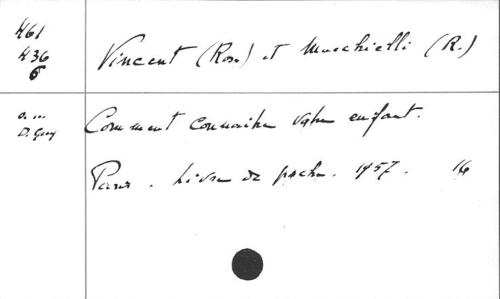 461
436
6
Vincent (Rose) et Mucchielli (R.)
D. Gey
Comment connaître votre enfant.
Paris. Livre de poche. 1957. 16